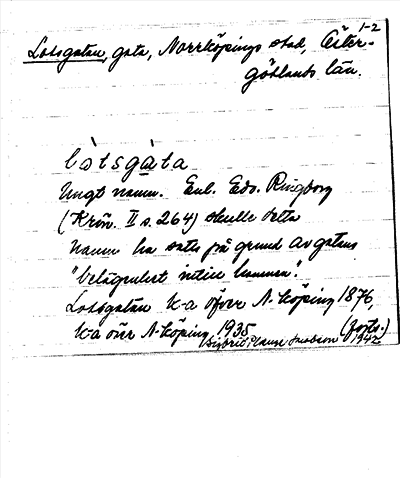 1-2
Lotsgatan, gata, Norrköpings stad, Öster-
götlands län.
lòtsgàta
Ungt namn. Enl. Edv. Ringborg
(Krön. II s. 264) skulle detta
namn ha satts på grund av gatans
"belägenhet intill hamnen".
Lotsgatan k-a öfver N-köping 1876,
k-a över N-köping 1935 (forts.)
Sigbrit Plænge Jacobson 1942